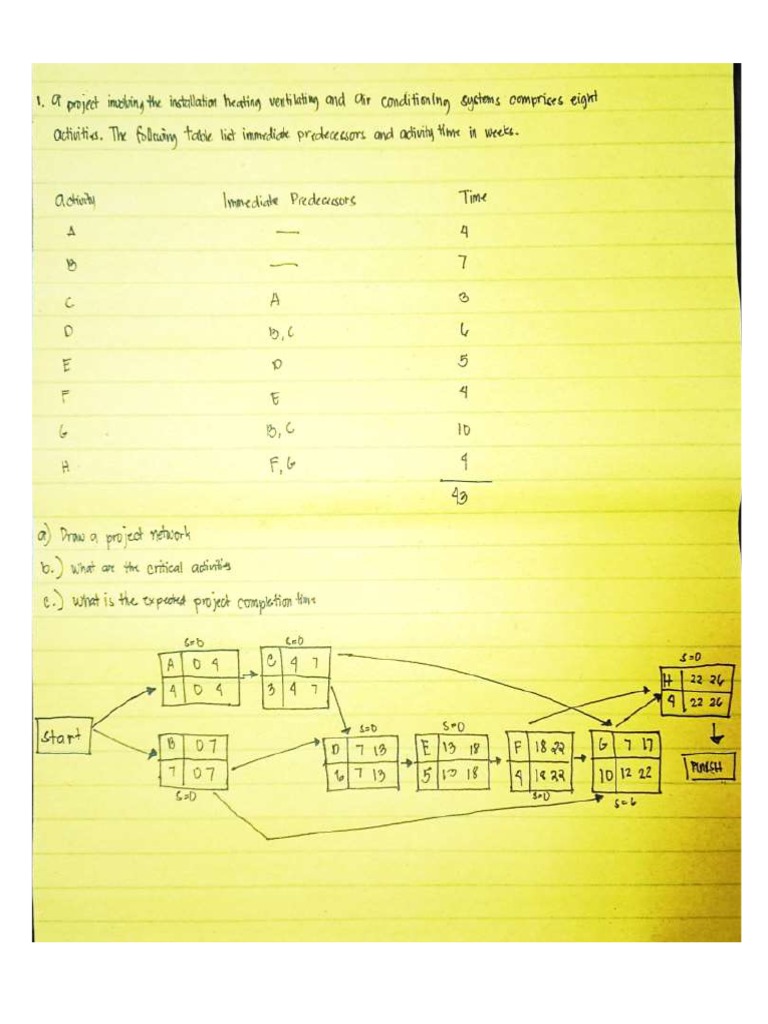 1. A project involving the installation heating ventilating and air conditioning systems comprises eight
activities. The following table list immediate predecessors and activity time in weeks.
Activity Immediate Predecessors Time
A — 4
B — 7
C A 3
D B, C 6
E D 5
F E 4
G B, C 10
H F, G 4
43
a) Draw a project network
b.) What are the critical activities
c.) What is the expected project completion time
S=0 S=0 S=0
A 0 4 C 4 7 H 22 26
4 0 4 3 4 7 4 22 26
Start
S=0 S=0
B 0 7 D 7 13 E 13 18 F 18 22 G 7 17
7 0 7 6 7 13 5 13 18 4 18 22 10 12 22
FINISH
S=0 S=0 S=6